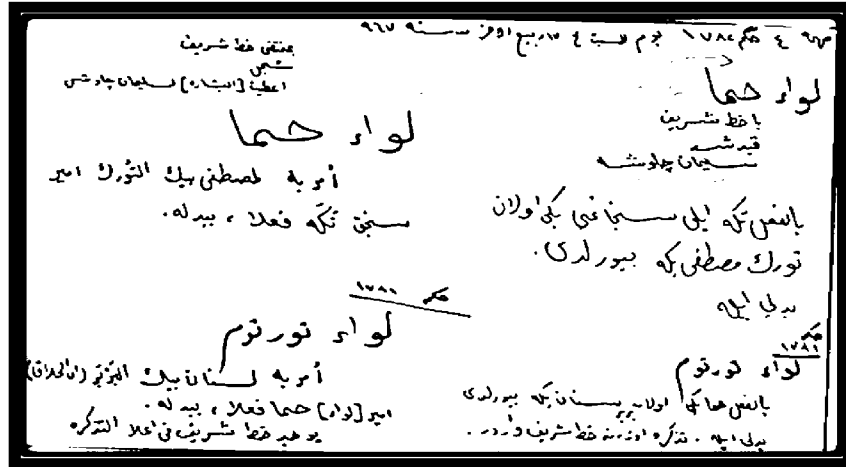 مهمه ٤ حكم ١٧٨٢ يوم السبت ٤ ربيع الآخر سنه ٩٦٧
لواء حما
با خط شريف
قيد شد
سليمان چاوشه
بالفعل تكه ايلى سنجاغى بكى اولان
تورك مصطفى بكه بيورلدى.
بدلى ايله
حكم
١٧٨١
لواء تورتوم
بالفعل حما بكى اولان سنان بكه بيورلدى
بدلى ايله . تذكره اوزرنه خط شريف واردر .
بمقتضى خط شريف
سجل
اعطيت [البشارة] لسليمان چاوش
لواء حما
أمر به لمصطفى بيك التورك امير
سنجق تكه فعلا ، ببدله.
حكم ١٧٨١
لواء تورتوم
أمر به لسنان بيك البربر (الحلاق)
امير [لواء] حما فعلا ، ببدله.
يوجد خط شريف في اعلا التذكره